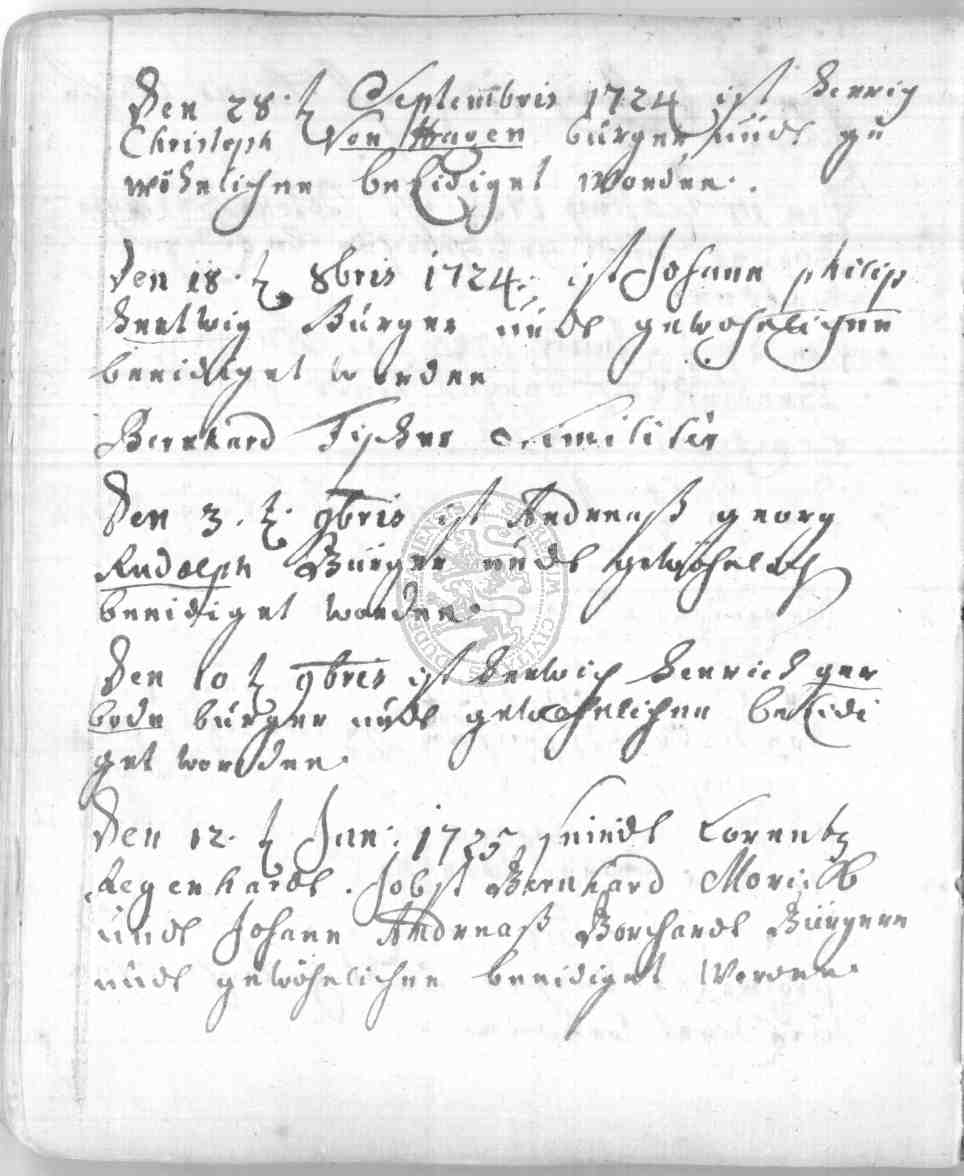 Den 28. t Septembris 1724 ist Henrig
Christoph Von Hagen bürger ündt ge
wöhnlichen beeidiget worden.
Den 18. t 8bris 1724. ist Johann philip
Hertwig Bürger ündt gewohnlichen
beeidiget worden
Bernhard Fischer similiter
Den 3. t. 9bris ist Andreaß georg
Rudolph Bürger ündt gewöhnlich
beeidiget worden.
Den 10 t 9bris ist Henrich ger
bürger ündt gewohnlichen beeidi
get worden.
Den 12. t Jan: 1725 seindt Lorentz
Regenhardt. Jobst Bernhard
ündt Johann Andreaß Borchardt Bürgere
ündt gewöhnlichen beeidiget worden.